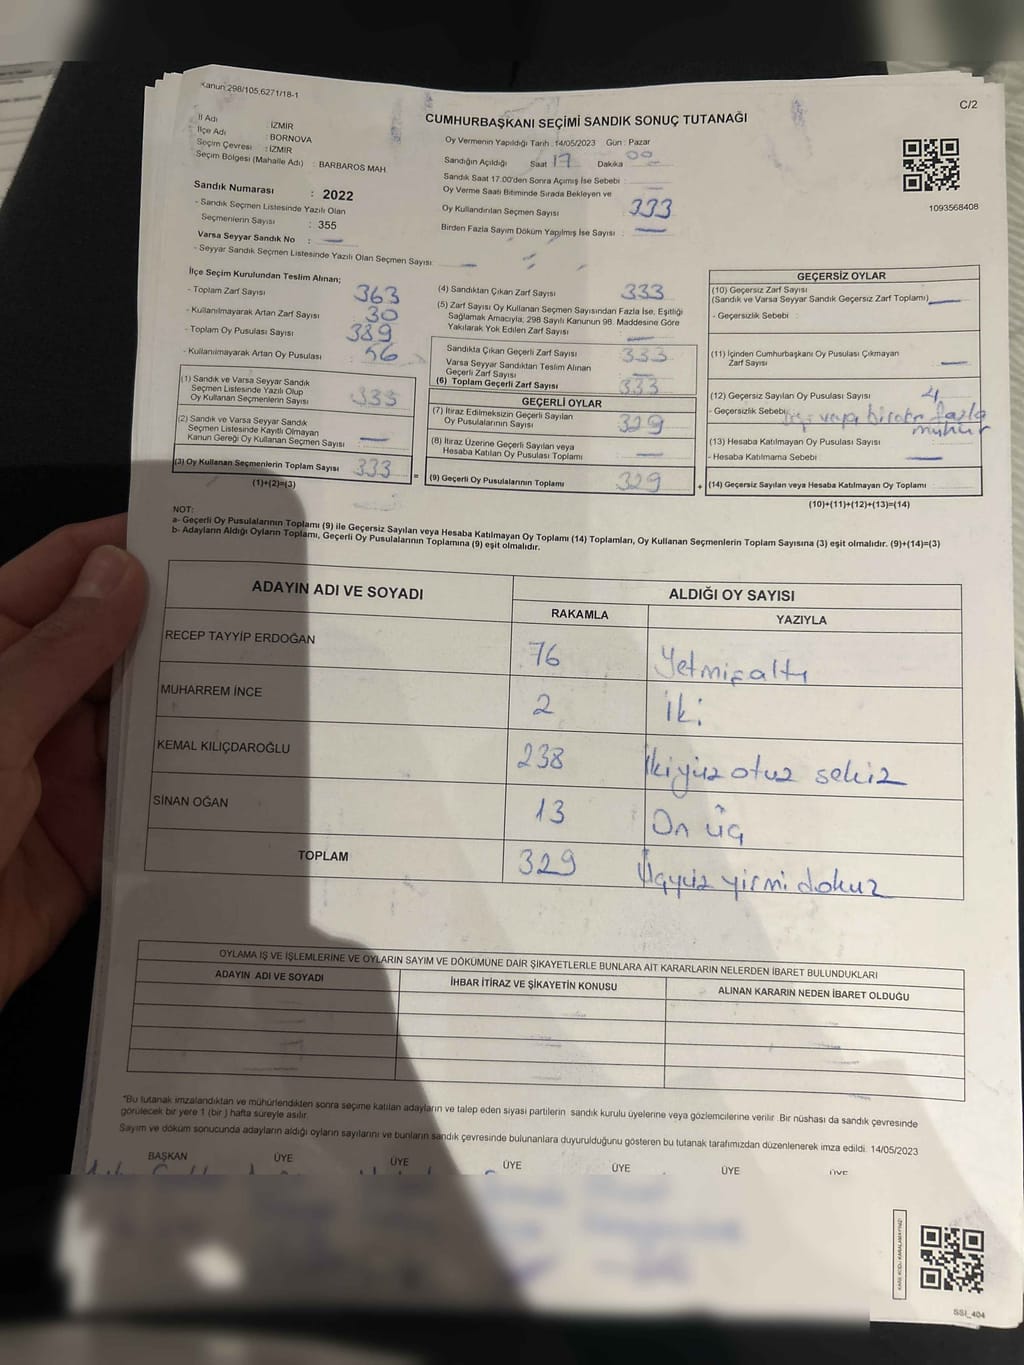 Kanun:298/105,6271/18-1
C/2
CUMHURBAŞKANI SEÇİMİ SANDIK SONUÇ TUTANAĞI
İl Adı : İZMİR
İlçe Adı : BORNOVA
Seçim Çevresi : İZMİR
Seçim Bölgesi (Mahalle Adı) : BARBAROS MAH.
Oy Vermenin Yapıldığı Tarih :14/05/2023 Gün : Pazar
Sandığın Açıldığı Saat 17 Dakika 00
Sandık Saat 17.00'den Sonra Açımış İse Sebebi :
Oy Verme Saati Bitiminde Sırada Bekleyen ve
Oy Kullandırılan Seçmen Sayısı 333
Birden Fazla Sayım Döküm Yapılmış İse Sayısı :
1093568408
Sandık Numarası : 2022
- Sandık Seçmen Listesinde Yazılı Olan
Seçmenlerin Sayısı : 355
Varsa Seyyar Sandık No :
- Seyyar Sandık Seçmen Listesinde Yazılı Olan Seçmen Sayısı:
İlçe Seçim Kurulundan Teslim Alınan;
- Toplam Zarf Sayısı 363
- Kullanılmayarak Artan Zarf Sayısı 30
- Toplam Oy Pusulası Sayısı 389
- Kullanılmayarak Artan Oy Pusulası 56
(1) Sandık ve Varsa Seyyar Sandık
Seçmen Listesinde Yazılı Olup
Oy Kullanan Seçmenlerin Sayısı 333
(2) Sandık ve Varsa Seyyar Sandık
Seçmen Listesinde Kayıtlı Olmayan
Kanun Gereği Oy Kullanan Seçmen Sayısı
(3) Oy Kullanan Seçmenlerin Toplam Sayısı 333
(1)+(2)=(3)
(4) Sandıktan Çıkan Zarf Sayısı 333
(5) Zarf Sayısı Oy Kullanan Seçmen Sayısından Fazla İse, Eşitliği
Sağlamak Amacıyla, 298 Sayılı Kanunun 98. Maddesine Göre
Yakılarak Yok Edilen Zarf Sayısı :
Sandıkta Çıkan Geçerli Zarf Sayısı 333
Varsa Seyyar Sandıktan Teslim Alınan
Geçerli Zarf Sayısı
(6) Toplam Geçerli Zarf Sayısı 333
GEÇERLİ OYLAR
(7) İtiraz Edilmeksizin Geçerli Sayılan
Oy Pusulalarının Sayısı 329
(8) İtiraz Üzerine Geçerli Sayılan veya
Hesaba Katılan Oy Pusulası Toplamı
= (9) Geçerli Oy Pusulalarının Toplamı 329
GEÇERSİZ OYLAR
(10) Geçersiz Zarf Sayısı
(Sandık ve Varsa Seyyar Sandık Geçersiz Zarf Toplamı)
- Geçersizlik Sebebi :
(11) İçinden Cumhurbaşkanı Oy Pusulası Çıkmayan
Zarf Sayısı
(12) Geçersiz Sayılan Oy Pusulası Sayısı 4
- Geçersizlik Sebebi veya birden fazla
mühür
(13) Hesaba Katılmayan Oy Pusulası Sayısı
- Hesaba Katılmama Sebebi
+ (14) Geçersiz Sayılan veya Hesaba Katılmayan Oy Toplamı
(10)+(11)+(12)+(13)=(14)
NOT:
a- Geçerli Oy Pusulalarının Toplamı (9) ile Geçersiz Sayılan veya Hesaba Katılmayan Oy Toplamı (14) Toplamları, Oy Kullanan Seçmenlerin Toplam Sayısına (3) eşit olmalıdır. (9)+(14)=(3)
b- Adayların Aldığı Oyların Toplamı, Geçerli Oy Pusulalarının Toplamına (9) eşit olmalıdır.
ADAYIN ADI VE SOYADI ALDIĞI OY SAYISI
RAKAMLA YAZIYLA
RECEP TAYYİP ERDOĞAN 76 Yetmişaltı
MUHARREM İNCE 2 İki
KEMAL KILIÇDAROĞLU 238 İkiyüz otuz sekiz
SİNAN OĞAN 13 On üç
TOPLAM 329 Üçyüz yirmi dokuz
OYLAMA İŞ VE İŞLEMLERİNE VE OYLARIN SAYIM VE DÖKÜMÜNE DAİR ŞİKAYETLERLE BUNLARA AİT KARARLARIN NELERDEN İBARET BULUNDUKLARI
ADAYIN ADI VE SOYADI İHBAR İTİRAZ VE ŞİKAYETİN KONUSU ALINAN KARARIN NEDEN İBARET OLDUĞU
*Bu tutanak imzalandıktan ve mühürlendikten sonra seçime katılan adayların ve talep eden siyasi partilerin sandık kurulu üyelerine veya gözlemcilerine verilir. Bir nüshası da sandık çevresinde
görülecek bir yere 1 (bir ) hafta süreyle asılır.
Sayım ve döküm sonucunda adayların aldığı oyların sayılarını ve bunların sandık çevresinde bulunanlara duyurulduğunu gösteren bu tutanak tarafımızdan düzenlenerek imza edildi. 14/05/2023
BAŞKAN ÜYE ÜYE ÜYE ÜYE ÜYE ÜYE
KARE KODU KARALAMAYINIZ!
SSI_404